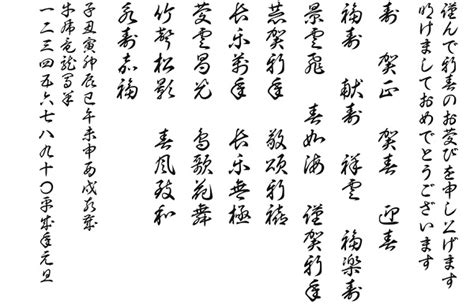 謹んで新春のお慶びを申し上げます
明けましておめでとうございます
寿 賀正 賀春 迎春
福寿 献寿 祥雲 福楽寿
景雲飛 春如海 謹賀新年
恭賀新年 敬頌新禧
長楽萬年 長楽無極
慶雲昌光 鳥歌花舞
竹聲松影 春風致和
永寿嘉福
子丑寅卯辰巳午未申酉戌亥歳
牛兎龍馬羊
一二三四五六七八九十〇平成年元旦